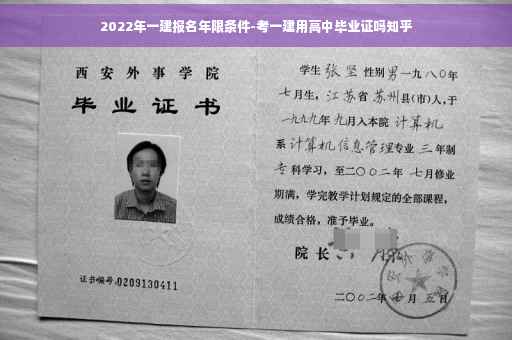 2022年一建报名年限条件-考一建用高中毕业证吗知乎
西安外事学院
毕业证书
证书编号:0209130411
学生 张坚 性别 男 一九八〇年
七月生，江苏省 苏州县(市)人，于
一九九九年 九月入本院 计算机
系 计算机信息管理专业 三 年制
专科学习，至二〇〇二年 七月修业
期满，学完教学计划规定的全部课程，
成绩合格，准予毕业。
院长
二〇〇二年 月 五日